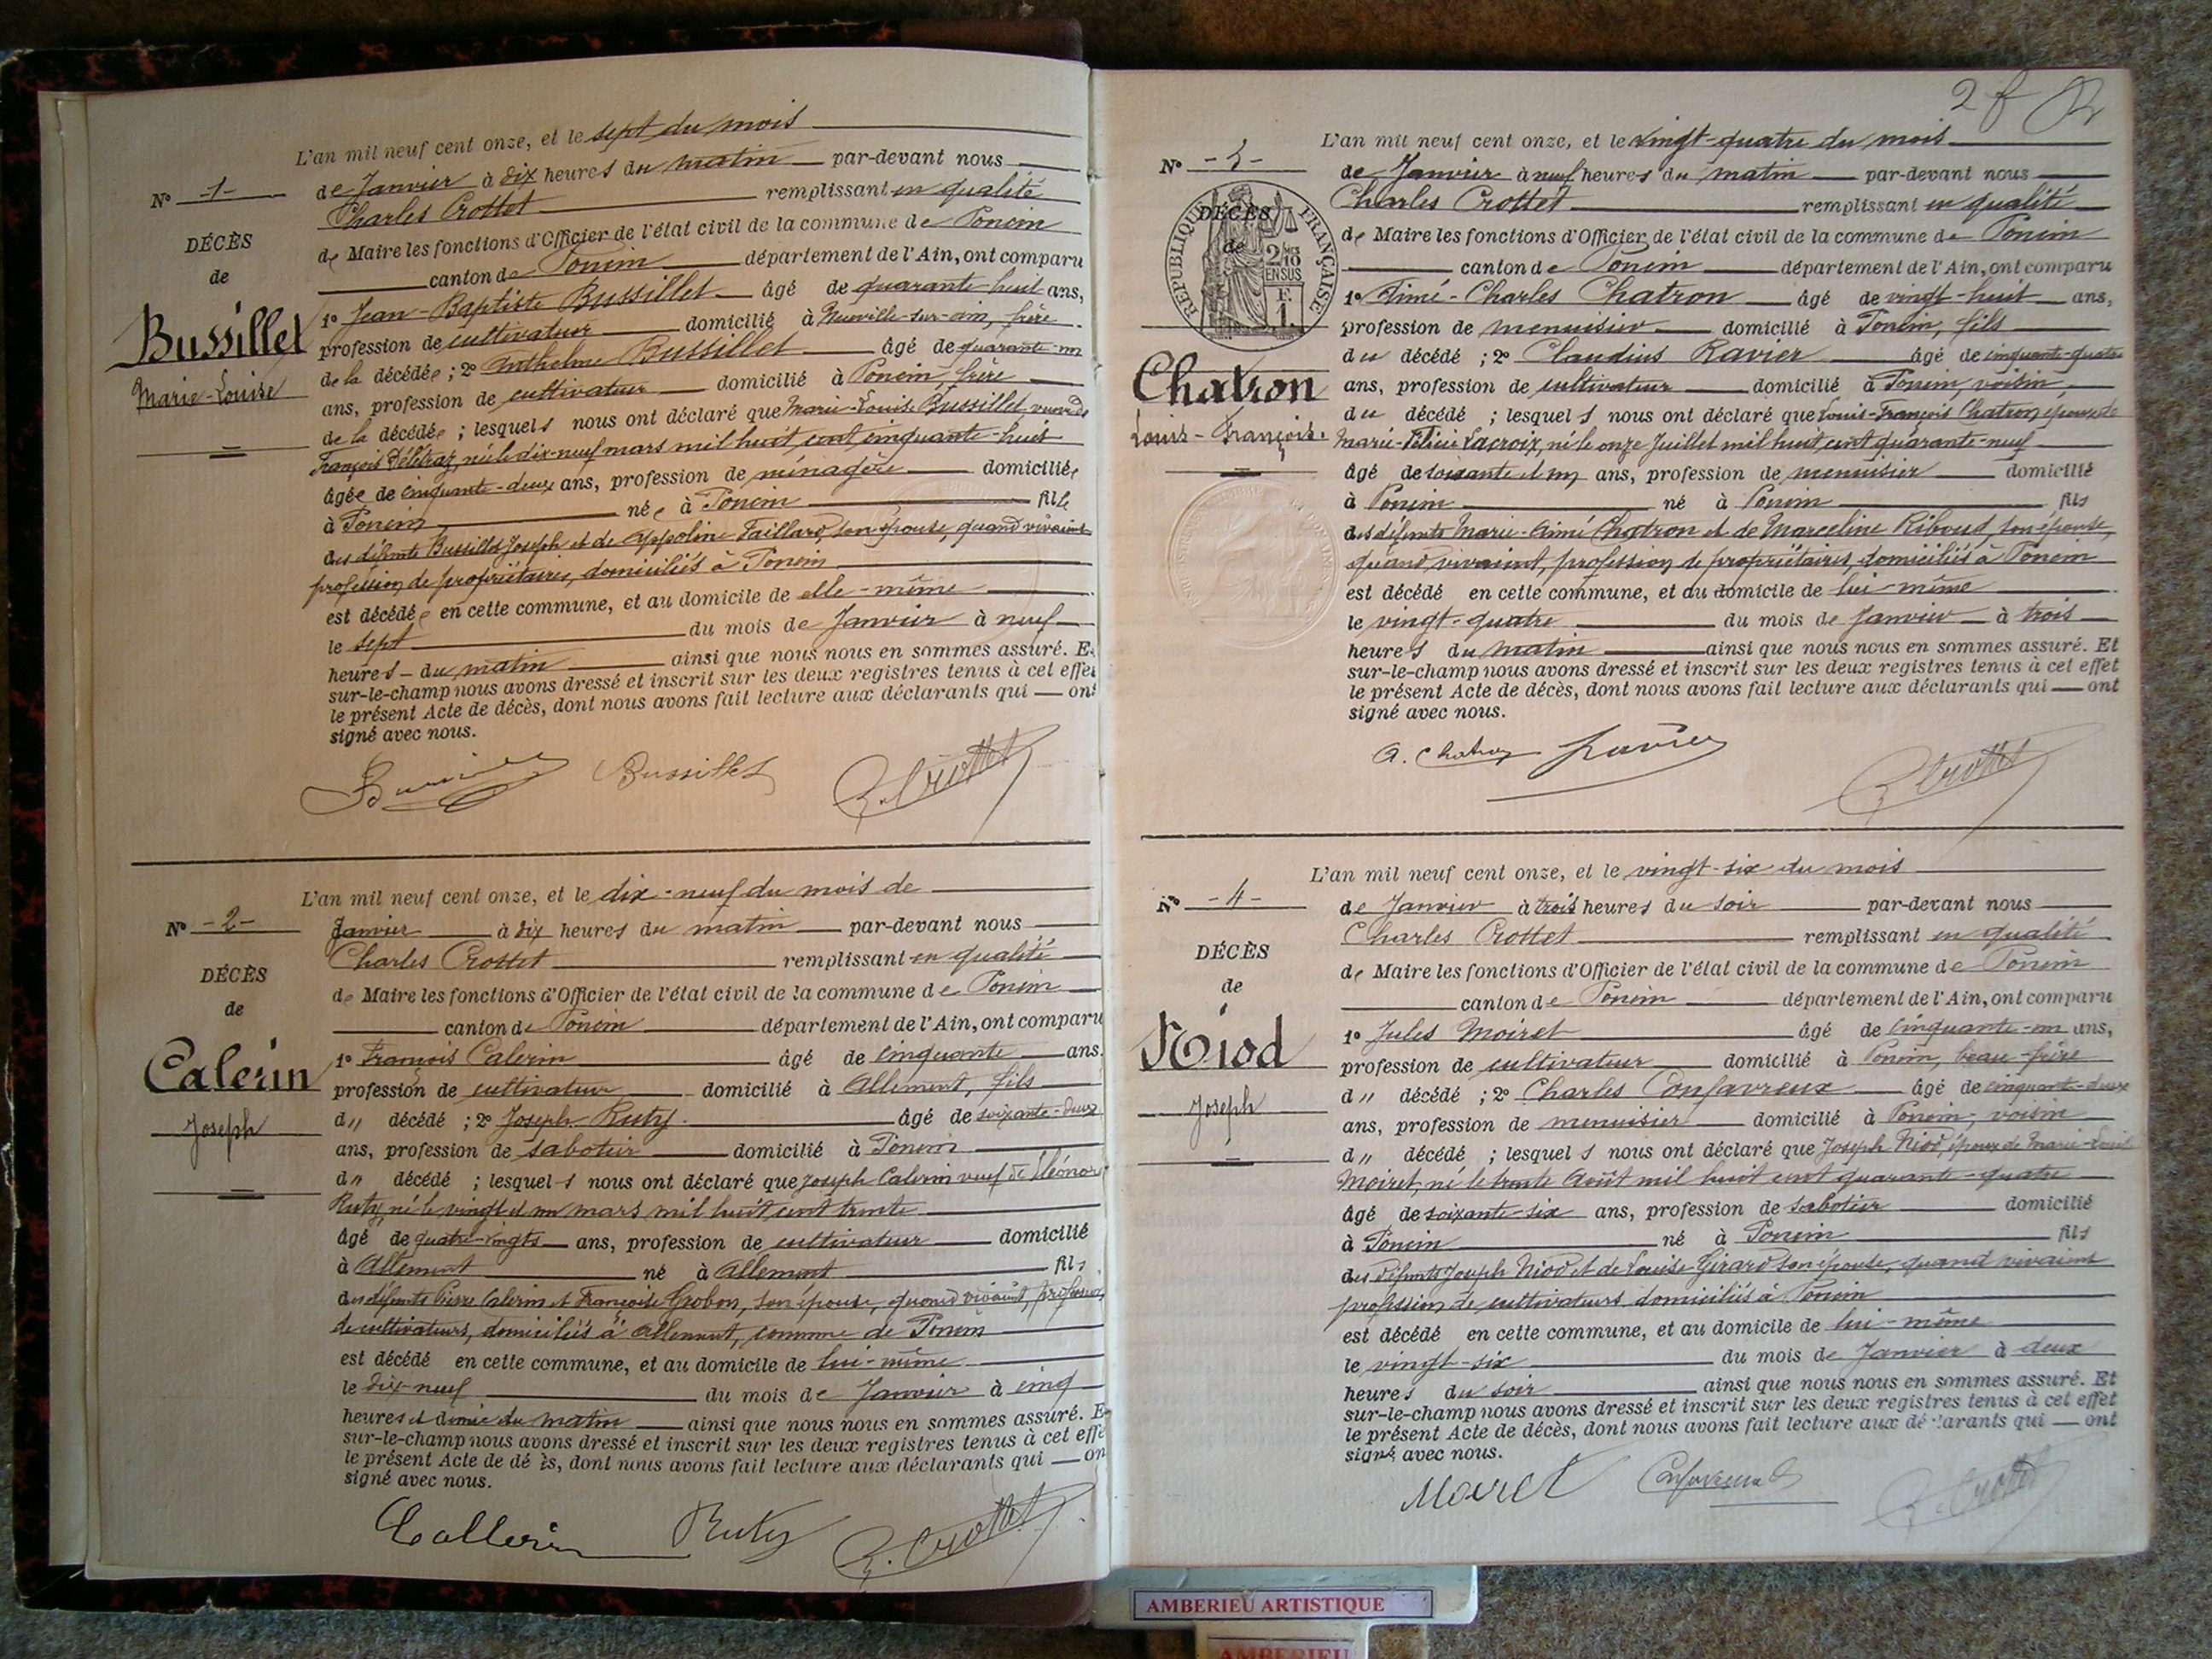 L'an mil neuf cent onze, et le sept du mois
N° -1- de Janvier à dix heures du matin par-devant nous
Charles Crottet remplissant en qualité
DÉCÈS
de
Bussillet
Marie-Louise
de Maire les fonctions d'Officier de l'état civil de la commune de Poncin
canton de Poncin département de l'Ain, ont comparu
1° Jean-Baptiste Bussillet âgé de quarante-huit ans,
profession de cultivateur domicilié à Neuville-sur-ain, frère
de la décédée ; 2° Anthelme Bussillet âgé de quarante-un
ans, profession de cultivateur domicilié à Poncin, frère
de la décédée ; lesquels nous ont déclaré que Marie-Louise Bussillet, veuve de
François Délétraz, née le dix-neuf mars mil huit cent cinquante-huit
âgée de cinquante-deux ans, profession de ménagère domiciliée
à Poncin née à Poncin fille
des défunts Bussillet Joseph et de Appoline Taillard, son épouse, quand vivaient
profession de propriétaires, domiciliés à Poncin
est décédée en cette commune, et au domicile de elle-même
le sept du mois de Janvier à neuf
heures du matin ainsi que nous nous en sommes assuré. E
sur-le-champ nous avons dressé et inscrit sur les deux registres tenus à cet effet
le présent Acte de décès, dont nous avons fait lecture aux déclarants qui ont
signé avec nous.
Bussillet C. Crottet
L'an mil neuf cent onze, et le dix-neuf du mois de
N° -2- Janvier à dix heures du matin par-devant nous
Charles Crottet remplissant en qualité
DÉCÈS
de
Calerin
Joseph
de Maire les fonctions d'Officier de l'état civil de la commune de Poncin
canton de Poncin département de l'Ain, ont comparu
1° François Calerin âgé de cinquante ans.
profession de cultivateur domicilié à Allement, fils
d" décédé ; 2° Joseph Ruty âgé de soixante-deux
ans, profession de sabotier domicilié à Poncin
d" décédé ; lesquels nous ont déclaré que Joseph Calerin veuf de Eléonore
Ruty, né le vingt et un mars mil huit cent trente
âgé de quatre-vingts ans, profession de cultivateur domicilié
à Allement né à Allement fils
des défunts Pierre Calerin et Françoise Grobon, son épouse, quand vivaient, profession
de cultivateurs, domiciliés à Allement, commune de Poncin
est décédé en cette commune, et au domicile de lui-même
le dix-neuf du mois de Janvier à cinq
heures et demie du matin ainsi que nous nous en sommes assuré. E
sur-le-champ nous avons dressé et inscrit sur les deux registres tenus à cet effe
le présent Acte de dé ès, dont nous avons fait lecture aux déclarants qui on
signé avec nous.
Callerin Ruty C. Crottet
2 f
L'an mil neuf cent onze, et le vingt-quatre du mois
N° -3- de Janvier à neuf heures du matin par-devant nous
Charles Crottet remplissant en qualité
RÉPUBLIQUE FRANÇAISE
DÉCÈS
de
2/10 EN SUS
F. 1.
Chatron
Louis-François
de Maire les fonctions d'Officier de l'état civil de la commune de Poncin
canton de Poncin département de l'Ain, ont comparu
1° Aimé-Charles Chatron âgé de vingt-huit ans,
profession de menuisier domicilié à Poncin, fils
du décédé ; 2° Claudius Ravier âgé de cinquante-quatre
ans, profession de cultivateur domicilié à Poncin, voisin
du décédé ; lesquels nous ont déclaré que Louis-François Chatron, époux de
Marie-Félicie Lacroix, né le onze Juillet mil huit cent quarante-neuf
âgé de soixante et un ans, profession de menuisier domicilié
à Poncin né à Poncin fils
des défunts Marie-Aimé Chatron et de Marceline Riboud, son épouse,
quand vivaient, profession de propriétaires, domiciliés à Poncin
est décédé en cette commune, et au domicile de lui-même
le vingt-quatre du mois de Janvier à trois
heures du matin ainsi que nous nous en sommes assuré. Et
sur-le-champ nous avons dressé et inscrit sur les deux registres tenus à cet effet
le présent Acte de décès, dont nous avons fait lecture aux déclarants qui ont
signé avec nous.
A. Chatron Ravier C. Crottet
L'an mil neuf cent onze, et le vingt-six du mois
N° -4- de Janvier à trois heures du soir par-devant nous
Charles Crottet remplissant en qualité
DÉCÈS
de
Niod
Joseph
de Maire les fonctions d'Officier de l'état civil de la commune de Poncin
canton de Poncin département de l'Ain, ont comparu
1° Jules Moiret âgé de cinquante-un ans,
profession de cultivateur domicilié à Poncin, beau-frère
d" décédé ; 2° Charles Confavreux âgé de cinquante-deux
ans, profession de menuisier domicilié à Poncin, voisin
d" décédé ; lesquels nous ont déclaré que Joseph Niod, époux de Marie-Louise
Moiret, né le trente Août mil huit cent quarante-quatre
âgé de soixante-six ans, profession de sabotier domicilié
à Poncin né à Poncin fils
des défunts Joseph Niod et de Louise Girard son épouse, quand vivaient
profession de cultivateurs domiciliés à Poncin
est décédé en cette commune, et au domicile de lui-même
le vingt-six du mois de Janvier à deux
heures du soir ainsi que nous nous en sommes assuré. Et
sur-le-champ nous avons dressé et inscrit sur les deux registres tenus à cet effet
le présent Acte de décès, dont nous avons fait lecture aux dé larants qui ont
signé avec nous.
Moiret Confavreux C. Crottet
AMBERIEU ARTISTIQUE
AMBERIEU